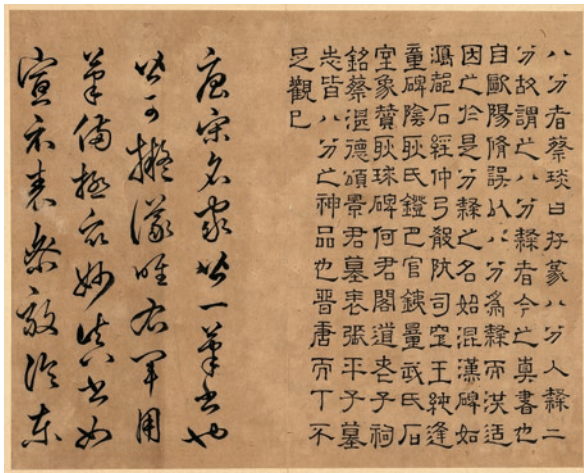 八分者蔡琰曰存篆八分人隸二
分故謂之八分隸者今之真書也
自歐陽脩誤以八分為隸而洪适
因之於是分隸之名始混漢碑如
鴻都石經仲弓殽阬司空王純逢
童碑陰耿氏鐙巴官銕量武氏石
室象贊耿球碑何君閣道老子祠
銘蔡湛德頌景君墓表張平子墓
志皆八分之神品也晉唐而下不
足觀已
唐宋名家皆一筆書也
皆可擬議唯右軍用
筆備極衆妙真書如
宣示表樂毅論東